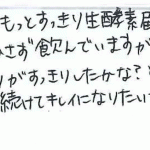 もっとすっきり生酵素届
さず飲んでいますが
りがすっきりしたかな?と
続けてキレイになりたい